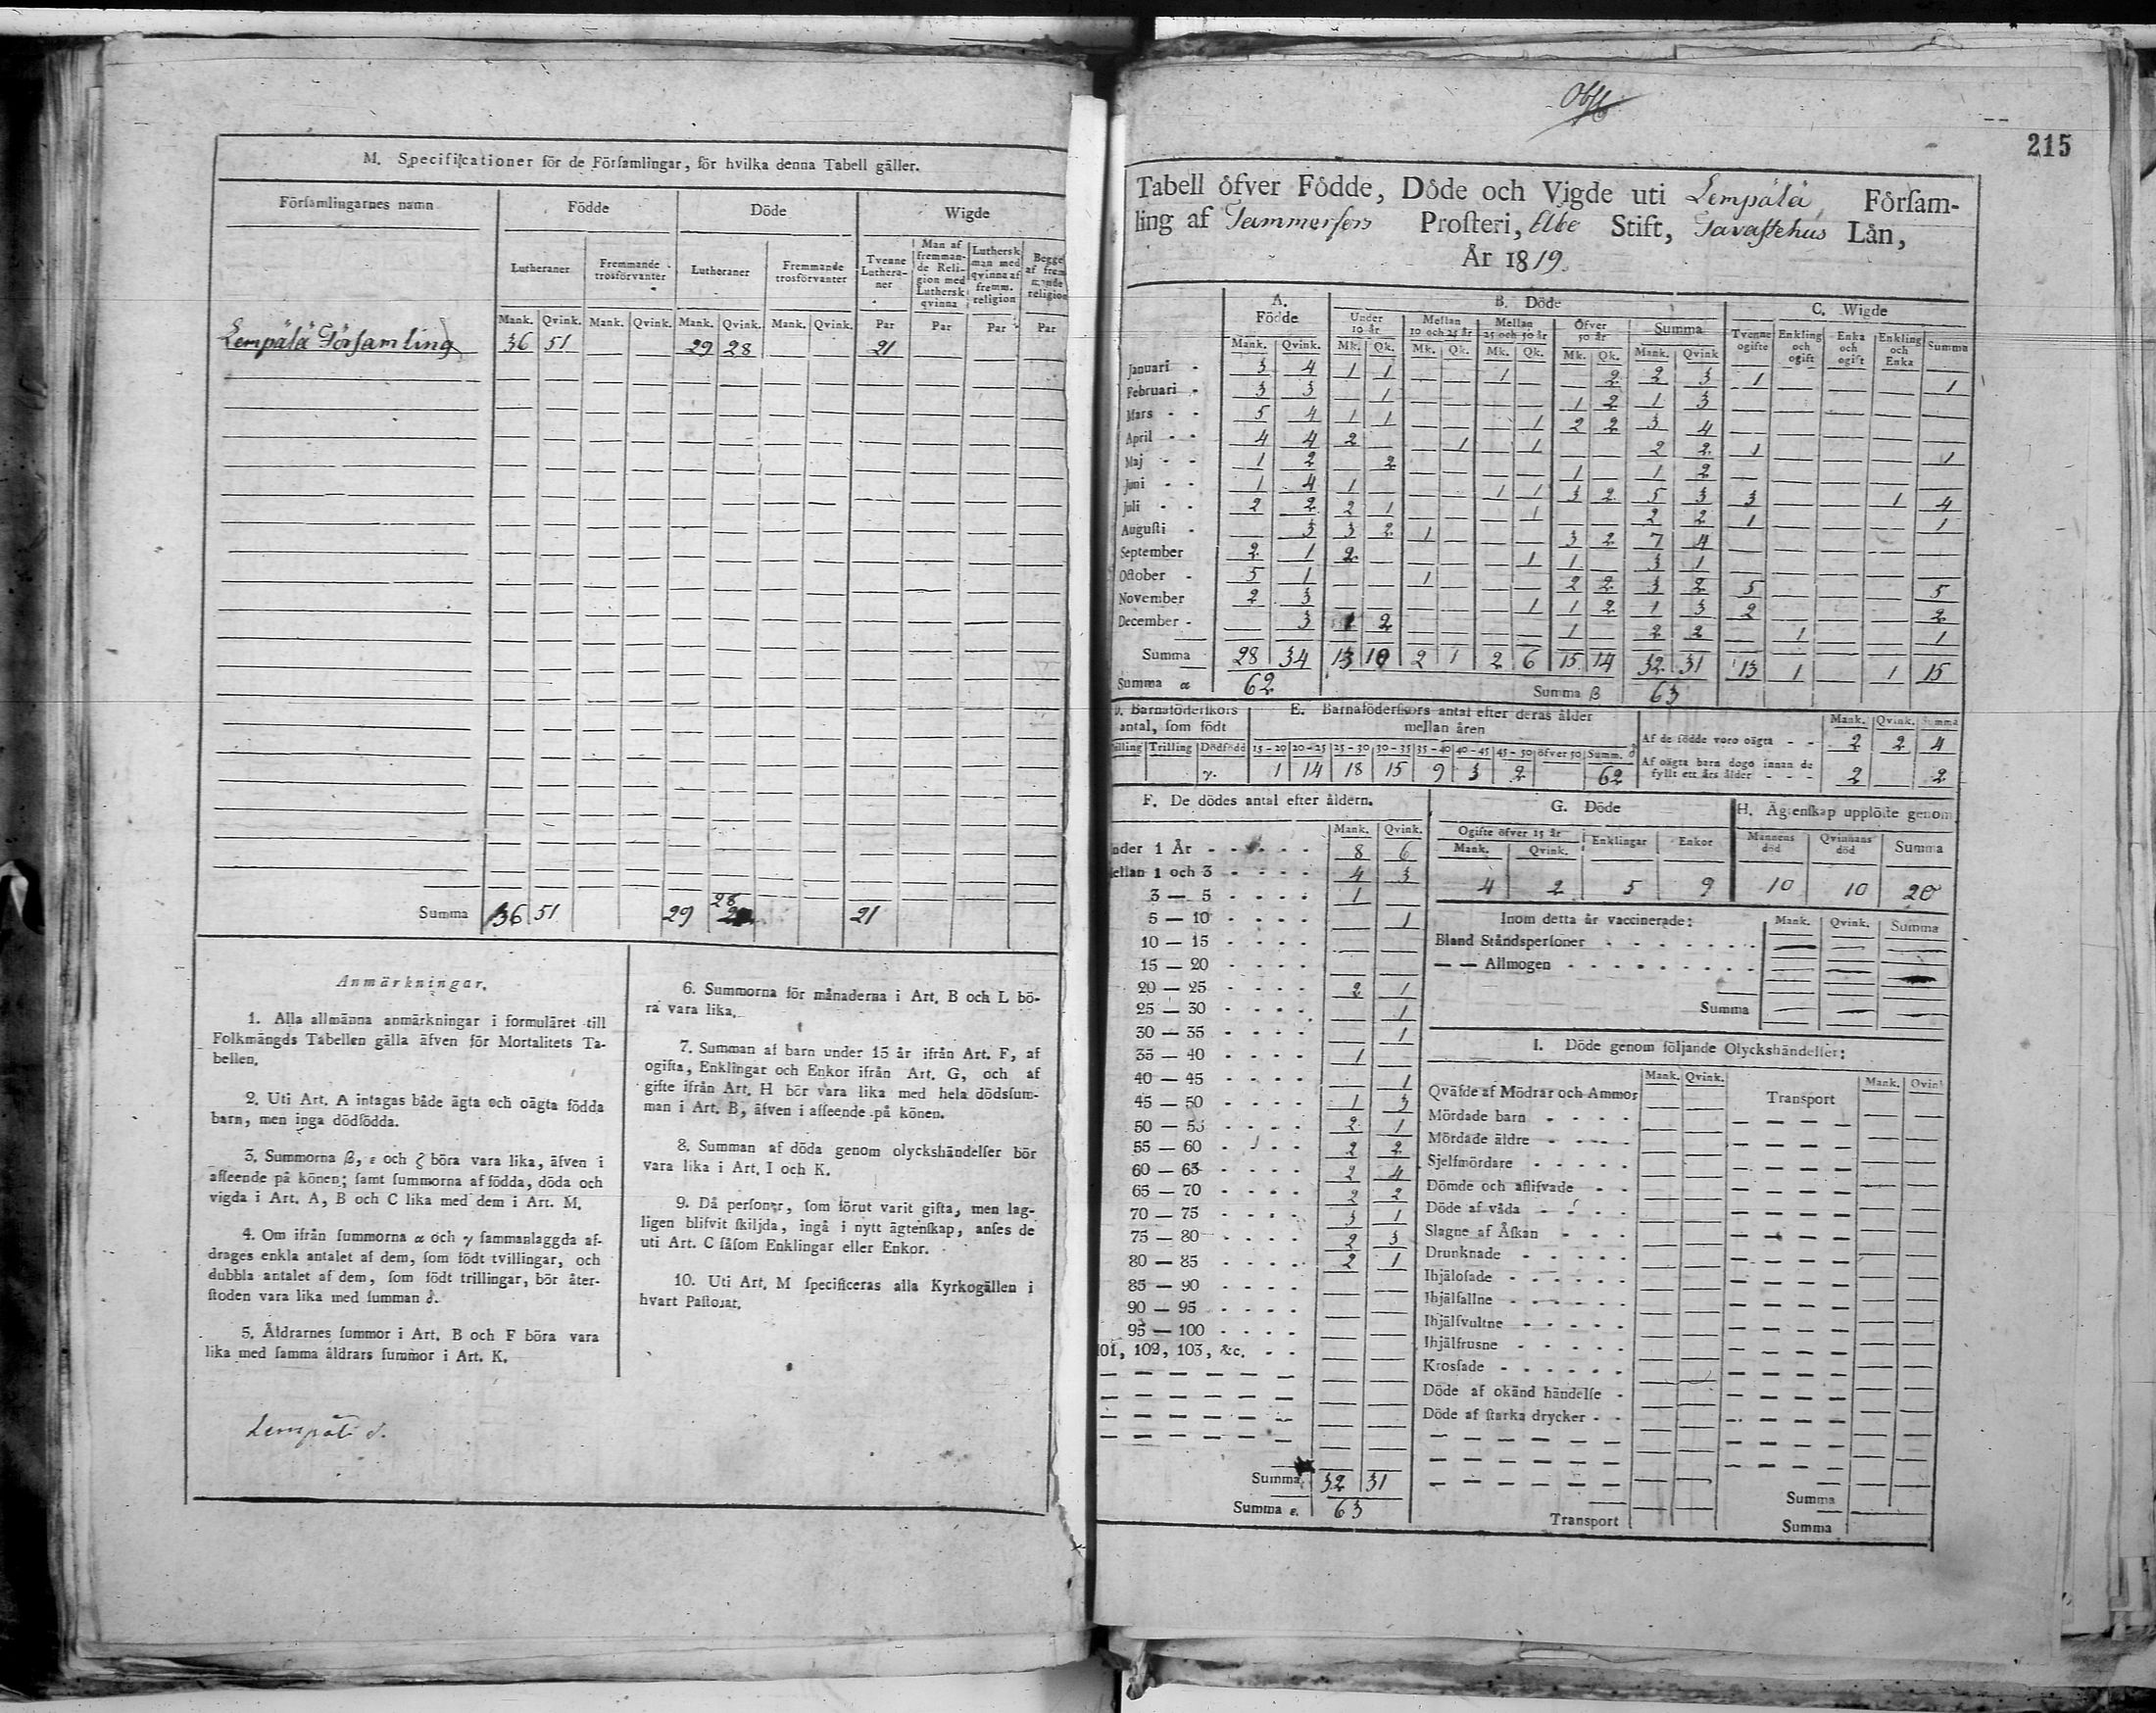 M. Specificationer för de Förſamlingar, för hvilka denna Tabell gäller.
Förſamlingarnes namn | Födde | Döde | Wigde
Lutheraner | Fremmande trosförvanter | Lutheraner | Fremmande trosförvanter | Tvenne Lutheraner | Man af fremmande Religion med Lutherſk qvinna | Lutherſk man med qvinna af fremm. religion | Begge af fremmande religion
Mank. | Qvink. | Mank. | Qvink. | Mank. | Qvink. | Mank. | Qvink. | Par | Par | Par | Par
Lempälä Förſamling | 36 | 51 | — | — | 29 | 28 | — | — | 21 | — | — | —
Summa | 36 | 51 | 29 | 28 | 21
Anmärkningar.
1. Alla allmänna anmärkningar i formuläret till
Folkmängds Tabellen gälla äfven för Mortalitets Ta-
bellen.
2. Uti Art. A intagas både ägta och oägta födda
barn, men inga dödfödda.
3. Summorna β, ε och ζ böra vara lika, äfven i
afſeende på könen; ſamt ſummorna af födda, döda och
vigda i Art. A, B och C lika med dem i Art. M.
4. Om ifrån ſummorna α och γ ſammanlaggda af-
drages enkla antalet af dem, ſom födt tvillingar, och
dubbla antalet af dem, ſom födt trillingar, bör åter-
ſtoden vara lika med ſumman δ.
5. Åldrarnes ſummor i Art. B och F böra vara
lika med ſamma åldrars ſummor i Art. K.
6. Summorna för månaderna i Art. B och L bö-
ra vara lika.
7. Summan af barn under 15 år ifrån Art. F, af
ogifta, Enklingar och Enkor ifrån Art. G, och af
gifte ifrån Art. H bör vara lika med hela dödsſum-
man i Art. B, äfven i afſeende på könen.
8. Summan af döda genom olyckshändelſer bör
vara lika i Art. I och K.
9. Då perſoner, ſom förut varit gifta, men lag-
ligen blifvit ſkiljda, ingå i nytt ägtenſkap, anſes de
uti Art. C ſåſom Enklingar eller Enkor.
10. Uti Art. M ſpecificeras alla Kyrkogällen i
hvart Paſtorat.
215
Tabell öfver Födde, Döde och Vigde uti Lempälä Förſam-
ling af Tammerfors Proſteri, Åbo Stift, Tavaſtehus Län,
År 1819.
A. Födde | B. Döde | C. Wigde
Under 10 år | Mellan 10 och 25 år | Mellan 25 och 50 år | Öfver 50 år | Summa | Tvenne ogifte | Enkling och ogift | Enka och ogift | Enkling och Enka | Summa
Mank. | Qvink. | Mk. | Qk. | Mk. | Qk. | Mk. | Qk. | Mk. | Qk. | Mank. | Qvink
Januari - | 3 | 4 | 1 | 1 | — | — | 1 | — | — | 2 | 2 | 3 | 1 | — | — | — | 1
Februari - | 3 | 3 | — | 1 | — | — | — | — | 1 | 2 | 1 | 3 | — | — | — | — | —
Mars - - | 5 | 4 | 1 | 1 | — | — | — | 1 | 2 | 2 | 3 | 4 | — | — | — | — | —
April - - | 4 | 4 | 2 | — | — | 1 | — | 1 | — | — | 2 | 2 | 1 | — | — | — | 1
Maj - - | 1 | 2 | — | 2 | — | — | — | — | 1 | — | 1 | 2 | — | — | — | — | —
Juni - - | 1 | 4 | 1 | — | — | — | 1 | 1 | 3 | 2 | 5 | 3 | 3 | — | — | 1 | 4
Juli - - | 2 | 2 | 2 | 1 | — | — | — | 1 | — | — | 2 | 2 | 1 | — | — | — | 1
Auguſti - | — | 3 | 3 | 2 | 1 | — | — | — | 3 | 2 | 7 | 4 | — | — | — | — | —
September | 2 | 1 | 2 | — | — | — | — | 1 | 1 | — | 3 | 1 | — | — | — | — | —
October - | 5 | 1 | — | — | 1 | — | — | — | 2 | 2 | 3 | 2 | 5 | — | — | — | 5
November | 2 | 3 | — | — | — | — | — | 1 | 1 | 2 | 1 | 3 | 2 | — | — | — | 2
December - | — | 3 | 1 | 2 | — | — | — | — | 1 | — | 2 | 2 | — | 1 | — | — | 1
Summa | 28 | 34 | 13 | 10 | 2 | 1 | 2 | 6 | 15 | 14 | 32 | 31 | 13 | 1 | 1 | 15
Summa α | 62 | Summa β | 63
Barnaföderſkors antal, ſom födt
illing | Trilling | Dödfödd
γ.
E. Barnaföderſkors antal efter deras ålder mellan åren
15-20 | 20-25 | 25-30 | 30-35 | 35-40 | 40-45 | 45-50 | öfver 50 | Summ. δ
1 | 14 | 18 | 15 | 9 | 3 | 2 | 62
Mank. | Qvink. | Summa
Af de födde voro oägta - - | 2 | 2 | 4
Af oägta barn dogo innan de fyllt ett års ålder - - - | 2 | 2
F. De dödes antal efter åldern.
Mank. | Qvink.
nder 1 År | 8 | 6
ellan 1 och 3 | 4 | 3
3 — 5 | 1 | —
5 — 10 | — | 1
10 — 15 | — | —
15 — 20 | — | —
20 — 25 | 2 | 1
25 — 30 | — | 1
30 — 35 | — | 1
35 — 40 | 1 | —
40 — 45 | — | 1
45 — 50 | 1 | 3
50 — 55 | 2 | 1
55 — 60 | 2 | 2
60 — 65 | 2 | 4
65 — 70 | 2 | 2
70 — 75 | 3 | 1
75 — 80 | 2 | 3
80 — 85 | 2 | 1
85 — 90 | — | —
90 — 95 | — | —
95 — 100 | — | —
01, 102, 103, &c. | — | —
Summa | 32 | 31
Summa ε. | 63
G. Döde
Ogifte öfver 15 år | Enklingar | Enkor
Mank. | Qvink.
4 | 2 | 5 | 9
H. Ägtenſkap upplöſte genom
Mannens död | Qvinnans död | Summa
10 | 10 | 20
Inom detta år vaccinerade: | Mank. | Qvink. | Summa
Bland Ståndsperſoner | — | — | —
— — Allmogen | — | — | —
Summa | — | — | —
I. Döde genom följande Olyckshändelſer:
Mank. | Qvink. | Transport | Mank. | Qvink
Qväfde af Mödrar och Ammor
Mördade barn
Mördade äldre
Sjelfmördare
Dömde och aflifvade
Döde af våda
Slagne af Åſkan
Drunknade
Ihjäloſade
Ihjälfallne
Ihjälſvultne
Ihjälfrusne
Krosſade
Döde af okänd händelſe
Döde af ſtarka drycker
Transport
Summa
Summa